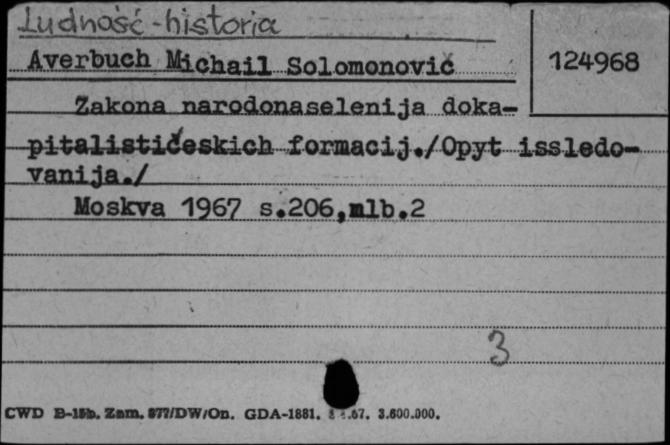 Ludność-historia
Averbuch Michail Solomonovič 124968
Zakona narodonaselenija doka-
pitalističeskich formacij./Opyt issledo-
vanija./
Moskva 1967 s.206,mlb.2
3
CWD B-15b. Zam. 877/DW/On. GDA-1881. .67. 3.600.000.